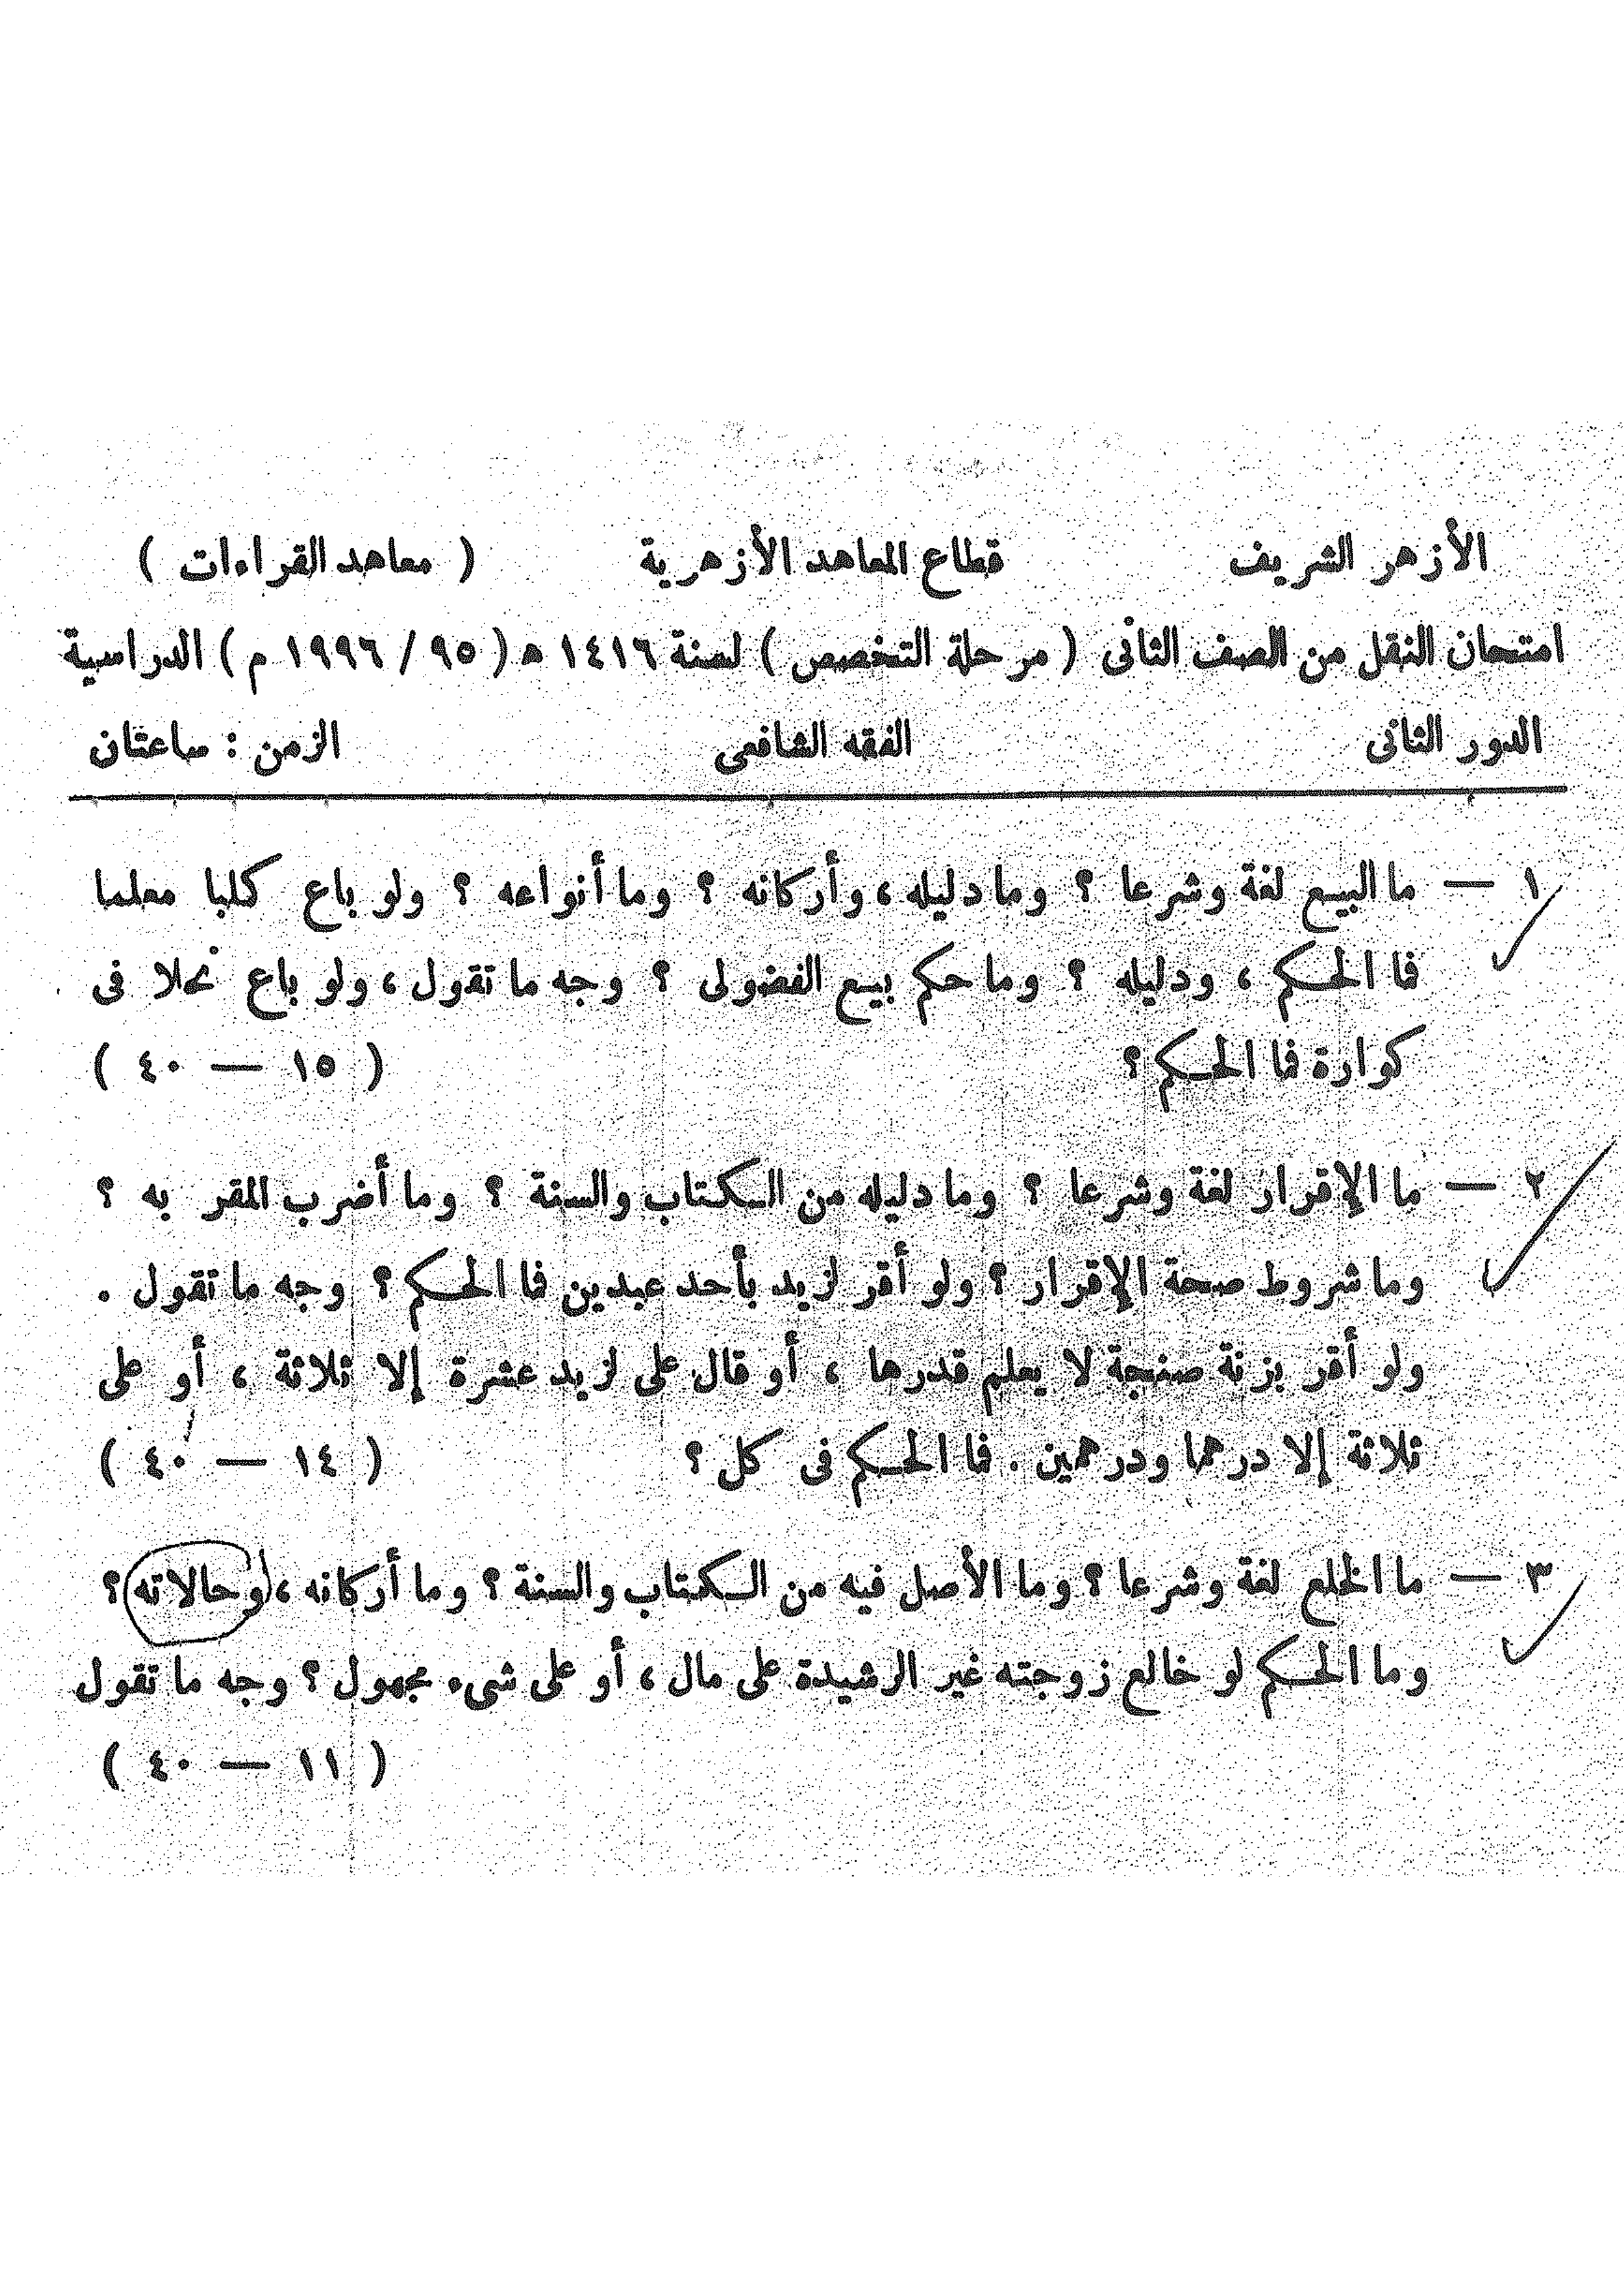 الأزهر الشريف قطاع المعاهد الأزهرية ( معاهد القراءات )
امتحان النقل من الصف الثانى ( مرحلة التخصص ) لسنة ١٤١٦ ه ( ٩٥ / ١٩٩٦ م ) الدراسية
الدور الثانى الفقه الشافعى الزمن : ساعتان
١ — ما البيع لغة وشرعا ؟ وما دليله ، وأركانه ؟ وما أنواعه ؟ ولو باع كلبا معلما
فما الحكم ، ودليله ؟ وما حكم بيع الفضولى ؟ وجه ما تقول ، ولو باع نحلا فى
كوارة فما الحكم ؟ ( ١٥ — ٤٠ )
٢ — ما الإقرار لغة وشرعا ؟ وما دليله من الكتاب والسنة ؟ وما أضرب المقر به ؟
وما شروط صحة الإقرار ؟ ولو أقر لزيد بأحد عبدين فما الحكم ؟ وجه ما تقول .
ولو أقر بزنة صنجة لا يعلم قدرها ، أو قال على لزيد عشرة إلا ثلاثة ، أو على
ثلاثة إلا درهما ودرهمين . فما الحكم فى كل ؟ ( ١٤ — ٤٠ )
٣ — ما الخلع لغة وشرعا ؟ وما الأصل فيه من الكتاب والسنة ؟ وما أركانه ، وحالاته ؟
وما الحكم لو خالع زوجته غير الرشيدة على مال ، أو على شىء مجهول ؟ وجه ما تقول
( ١١ — ٤٠ )